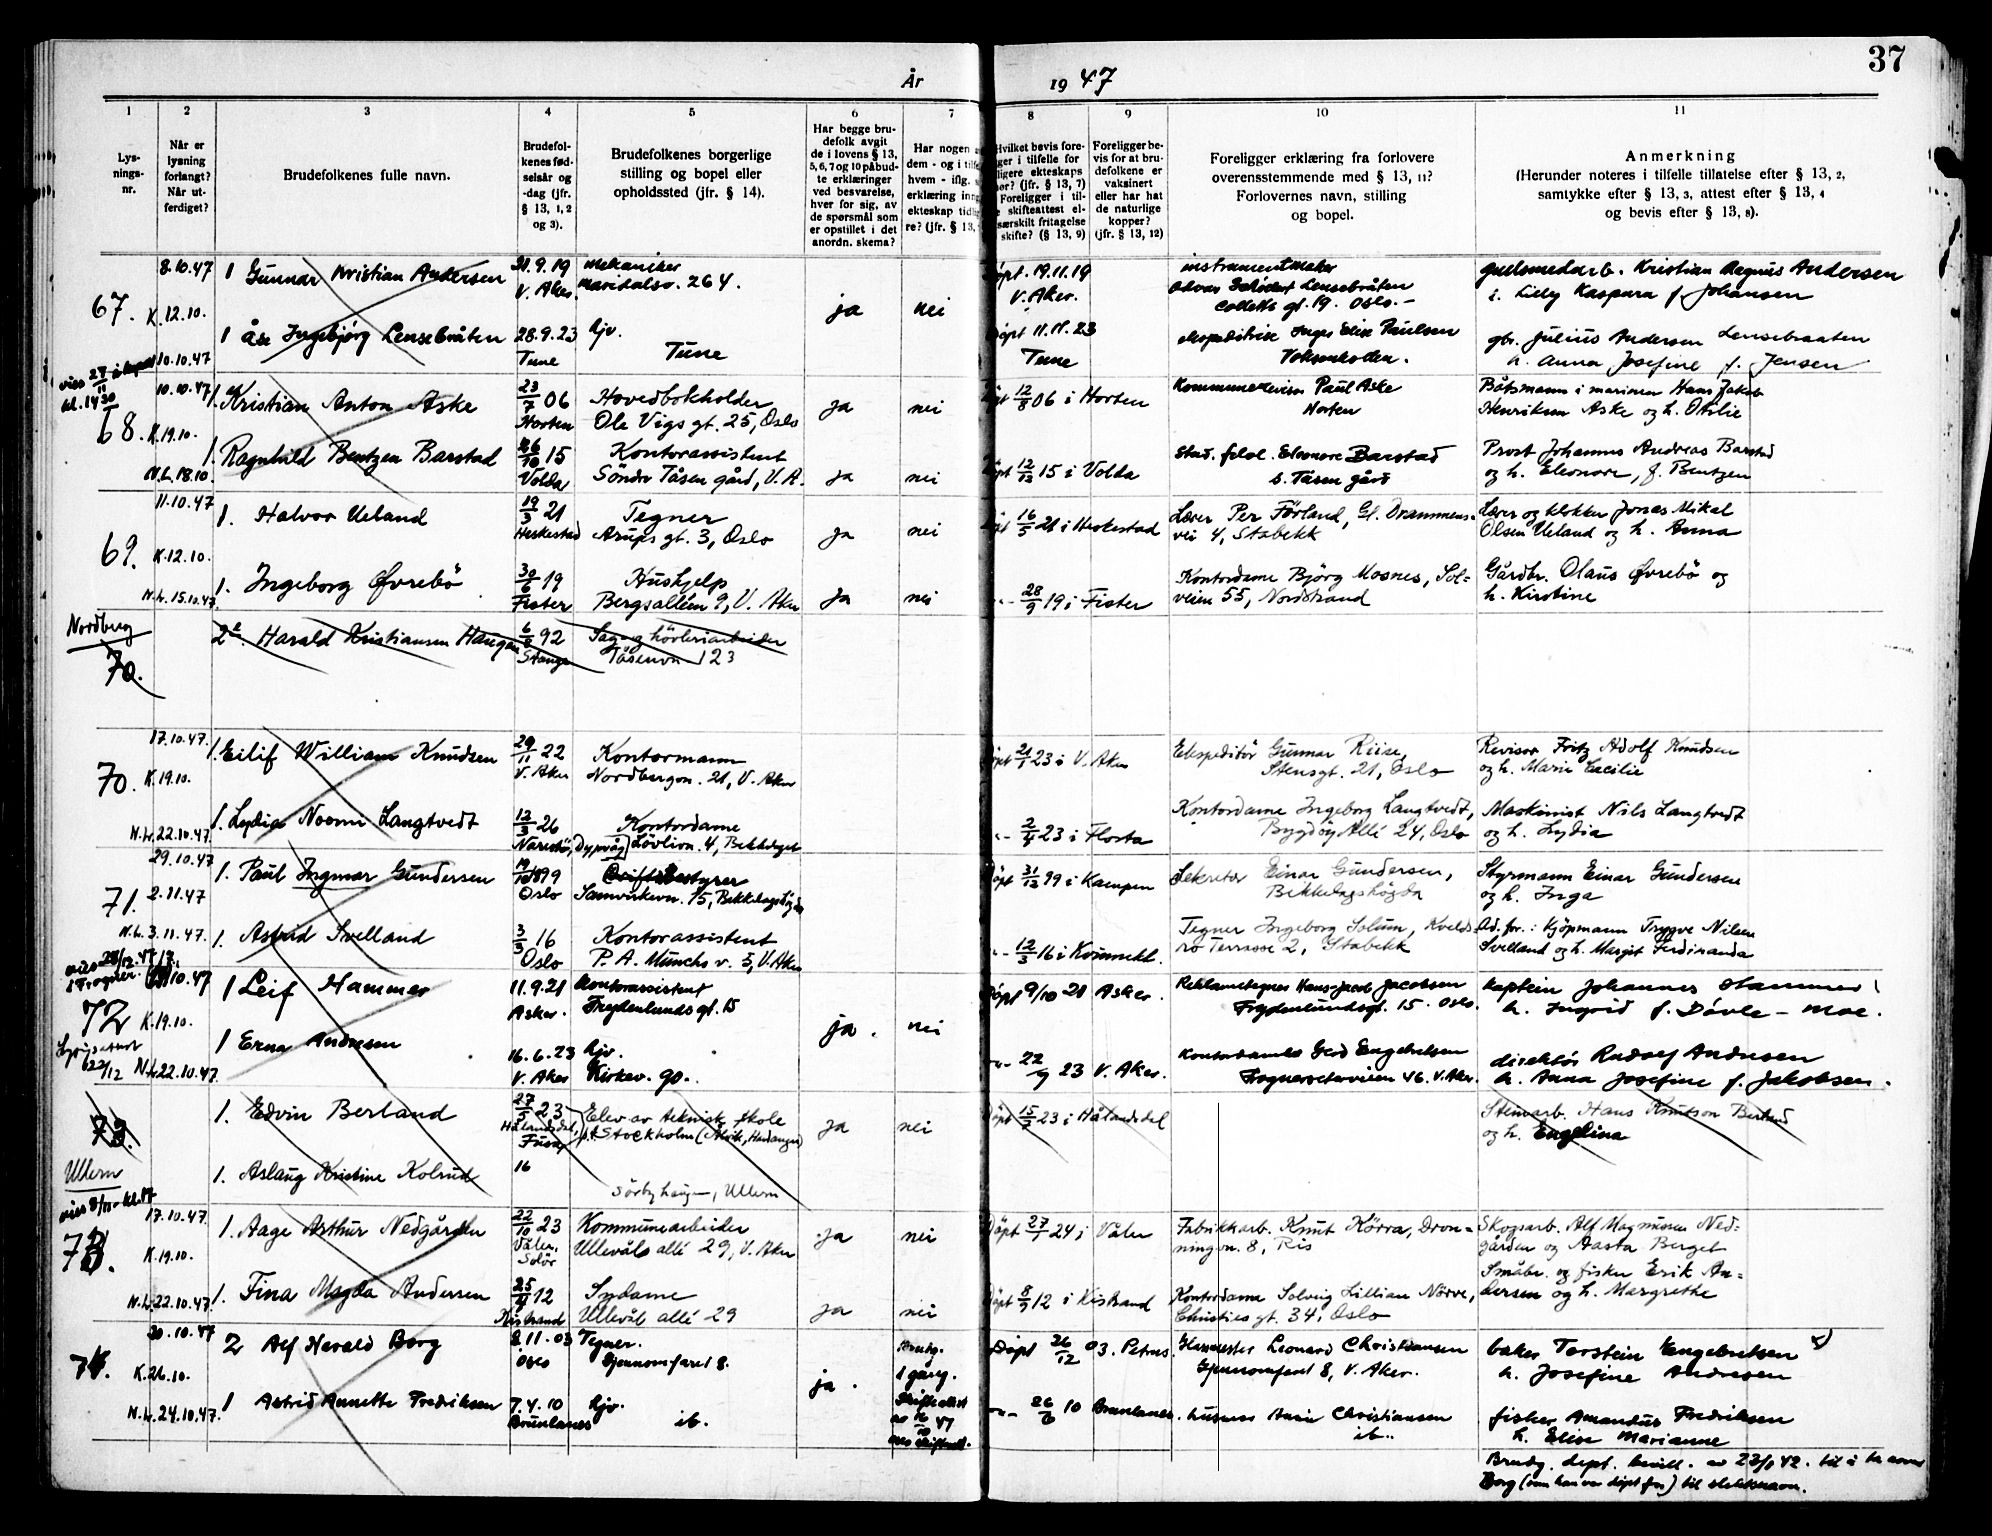 37
År 1947
1
2
3
4
5
6
7
8
9
10
11
Lys-
nings-
nr.
Når er
lysning
forlangt?
Når ut-
ferdiget?
Brudefolkenes fulle navn.
Brudefol-
kenes fød-
selsår og
-dag (jfr.
§ 13, 1, 2
og 3).
Brudefolkenes borgerlige
stilling og bopel eller
opholdssted (jfr. § 14).
Har begge bru-
defolk avgit
de i lovens § 13,
5, 6, 7 og 10 påbud-
te erklæringer
ved besvarelse,
hver for sig, av
de spørsmål som
er opstillet i det
anordn. skema?
Har nogen
dem - og i
hvem - iflg.
erklæring
ekteskap
re? (jfr. § 13,
Hvilket bevis fore-
ger i tilfelle for
ligere ekteskaps
hør? (jfr. § 13, 7)
Foreligger i til-
e skifteattest el-
særskilt fritagelse
skifte? (§ 13, 9)
Foreligger be-
vis for at bru-
defolkene er
vaksinert
eller har hat
de naturlige
kopper?
(jfr. § 13, 12)
Foreligger erklæring fra forlovere
overensstemmende med § 13, 11?
Forlovernes navn, stilling
og bopel.
Anmerkning
(Herunder noteres i tilfelle tillatelse efter § 13, 2,
samtykke efter § 13, 3, attest efter § 13, 4
og bevis efter § 13, 8).
67. 8.10.47 1 Gunnar Kristian Andersen 21.9.19 mekaniker
V. Aker. Maridalsv. 264.
K. 12.10. ja nei
1 Åse Ingebjørg Lensebråten 28.9.23 hjv.
10.10.47 Tune Tune
Døpt. 19.11.19 instrumentmaker
V. Aker. Lensebråten
Colletts gt. 19. Oslo. -
Kristian Magnus Andersen
Lilly Kaspara f. Johansen
Døpt 11.11.23 Inger Elise Paulsen
Tune Voksenkollen.
gbr. Julius Andersen Lensebraaten
h. Anna Josefine f. Jensen
kl. 14 30
68. 10.10.47 1. Kristian Anton Aske 23/7 06 Hovedbokholder ja nei
K. 19.10. Horten Ole Vigs gt. 25, Oslo
1. Ragnhild Bentzen Barstad 26/10 15 Kontorassistent
N.L. 18.10 Volda Søndre Tåsen gård, V. A. ja nei
12/8 06 i Horten Kommunerevisor Paul Aske
Horten
Båtsmann i marinen Hans Jakob
Henriksen Aske og h. Otilie
12/12 15 i Volda Stud. filol. Eleonore Barstad
S. Tåsen gård
Prost Johannes Andreas Barstad
og h. Eleonore, f. Bentzen
69. 11.10.47 1. Halvor Ueland 19/3 21 Tegner
K. 12.10. Heskestad Arups gt. 3, Oslo ja nei
1. Ingeborg Øvrebö 30/6 19 Hushjelp
N.L. 15.10.47 Fister Bergsalléen 9, V. Aker ja nei
16/5 21 i Heskestad Lærer Per Förland, Gl. Drammens-
vei 4, Stabekk
Lærer og klokker Jonas Mikal
Olsen Ueland og h. Anna
-"- 28/9 19 i Fister Kontordame Björg Mosnes, Sol-
veien 55, Nordstrand
Gårdbr. Olaus Øvrebö og
h. Kirstine
Nordberg
70. 2. Harald Kristiansen Haugen 6/8 92 Sag og hövleriarbeider
Stange Tåsenvn 123
70. 17.10.47. 1. Eilif William Knudsen 29/11 22 Kontormann
K. 19.10. V. Aker Nordbergvn. 21, V. Aker
1. Lydia Noemi Langtvedt 12/3 26 Kontordame
N.L. 22.10.47 Narestö, Dypvåg Lövlivn. 4, Bekkelaget
21/1 23 i V. Aker Ekspeditör Gunnar Riise,
Stensgt. 21, Oslo
Revisor Fritz Adolf Knudsen
og h. Marie Cecilie
-"- 2/4 23 i Flosta Kontordame Ingeborg Langtvedt,
Bygdöy Allé 24, Oslo
Maskinist Nils Langtvedt
og h. Lydia
71. 29.10.47 1. Paul Ingmar Gundersen 19/10 1899 Driftsbestyrer
2.11.47 Oslo Samvirkevn. 15, Bekkelagshögda
N.L. 3.11.47. 1. Astrid Svelland 3/3 16 Kontorassistent
Oslo P. A. Munchs v. 5, V. Aker
31/12 99 i Kampen Sekretær Einar Gundersen,
Bekkelagshögda
Styrmann Einar Gundersen
og h. Inga
-"- 12/3 16 i Tegner Ingeborg Solum, Kvelds-
ro Terrasse 2, Stabekk
Ad. for.: Kjöpmann Trygve Nilsen
Svelland og h. Margit Ferdinanda
72 17.10.47 1 Leif Hammer 11.9.21 Kontorassistent
K. 19.10. Asker. Frydenlunds gt. 15
1 Erna Andresen 16.6.23 hjv. ja. nei
N.L. 22.10.47. V. Aker Kirkev. 90.
Døpt 9/10 21 Asker. Reklametegner Hans-Jacob Jacobsen
Frydenlundsgt. 15. Oslo.
kaptein Johannes Hammer
h. Ingrid f. Døvle - Moe.
-"- 22/9 23 V. Aker. Kontordame Gerd Engebretsen
Frognerseterveien 46. V. Aker.
direktør Rudolf Andresen
h. Anna Josefine f. Jakobsen.
73. 1. Edvin Berland 27/5 23 Elev av teknisk skole ja nei
Hålandsdal, Fusa p.t. Stockholm (Ålvik, Hardanger)
Ullern 1. Aslaug Kristine Kolrud 16
Sørbyhaugen, Ullern
Døpt 15/7 23 i Hålandsdal
Stenarb. Hans Knutson Berland
og h. Engelina
73. 17.10.47. 1. Aage Arthur Nedgården 22/10 23 Kommunearbeider ja nei
K. 19.10. Våler, Solør Ullevåls allé 29, V. Aker
N.L. 22.10.47. 1. Fina Magda Andersen 25/4 12 Sydame
Kistrand Ullevåls allé 29 ja nei
Døpt 27/1 24 i Våler Fabrikkarb. Knut Körra, Dron-
ningvn. 8, Ris
Skogsarb. Alf Magnussen Ned-
gården og Aasta Berget
Døpt 8/9 12 i Kistrand Kontordame Solveig Lillian Nörve,
Christies gt. 34, Oslo
Småbr. og fisker Erik An-
dersen og h. Margrethe
74. 20.10.47 2 Alf Harald Borg 8.11.03 Tegner.
K. 26.10. Oslo Gjennomfaret 8. ja. 1 gang.
N.L. 24.10.47. 1 Astrid Annette Fredriksen 7.4.10 hjv.
Brunlanes ib.
Døpt 26/12 03. Petrus. Leonard Christiansen
Gjennomfaret 8, V. Aker.
baker Torstein Engebretsen x)
h. Josefine Andresen
-"- 26/6 10 Brunlanes. husmor Christiansen
ib..
fisker Amandus Fredriksen
h. Elise Marianne
Borg til slektsnavn.